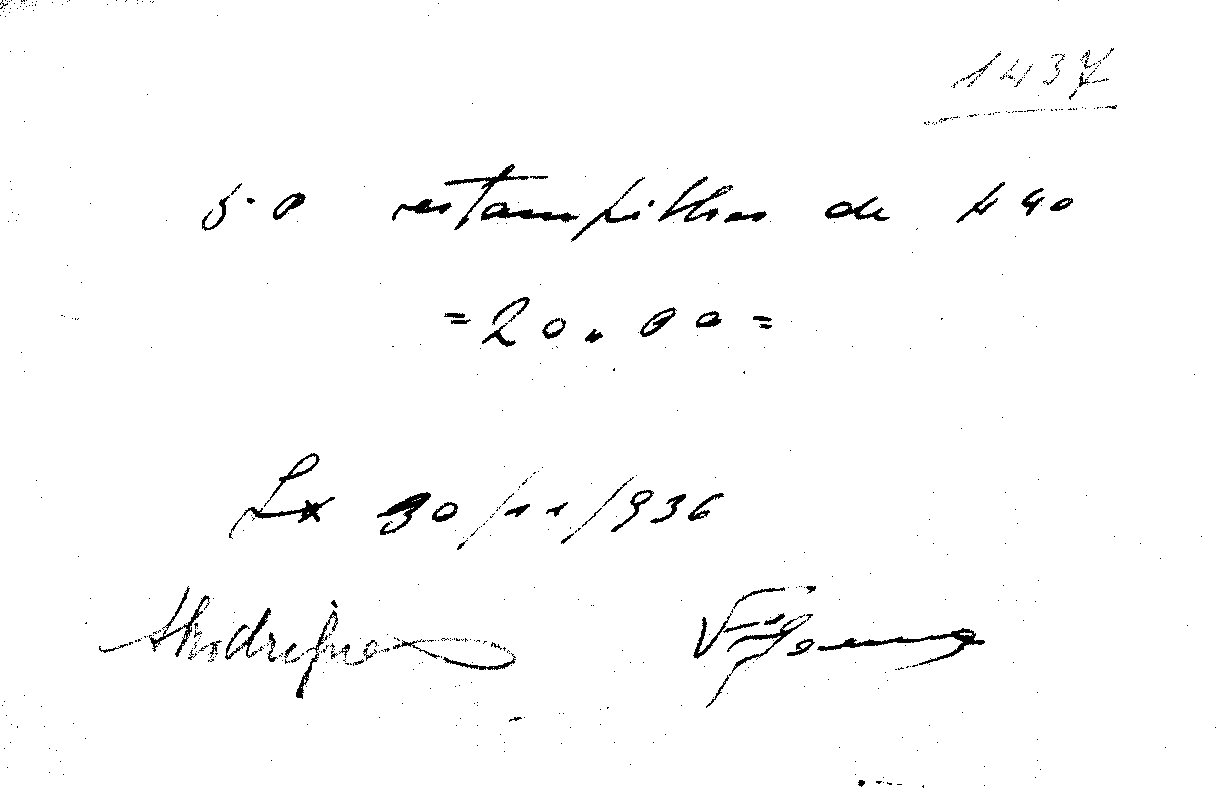 1437
50 estampilhas de $40
=20.00=
Lx 30/11/936